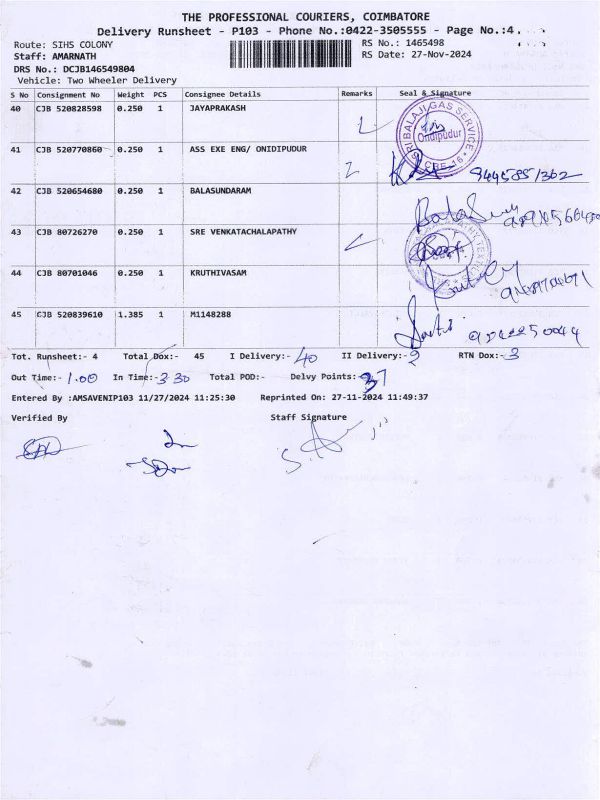 THE PROFESSIONAL COURIERS, COIMBATORE
Delivery Runsheet - P103 - Phone No.:0422-3505555 - Page No.:4
Route: SIHS COLONY RS No.: 1465498
Staff: AMARNATH RS Date: 27-Nov-2024
DRS No.: DCJB146549804
Vehicle: Two Wheeler Delivery
S No Consignment No Weight PCS Consignee Details Remarks Seal & Signature
40 CJB 520828598 0.250 1 JAYAPRAKASH
SRI BALAJI GAS SERVICE
Ondipudur
CBE-16
41 CJB 520770860 0.250 1 ASS EXE ENG/ ONIDIPUDUR
42 CJB 520654680 0.250 1 BALASUNDARAM
43 CJB 80726270 0.250 1 SRE VENKATACHALAPATHY
44 CJB 80701046 0.250 1 KRUTHIVASAM
45 CJB 520839610 1.385 1 M1148288
Tot. Runsheet:- 4 Total Dox:- 45 I Delivery:- 40 II Delivery:- 2 RTN Dox:- 3
Out Time:- 1.00 In Time:- 3.30 Total POD:- Delvy Points:- 37
Entered By :AMSAVENIP103 11/27/2024 11:25:30 Reprinted On: 27-11-2024 11:49:37
Verified By Staff Signature